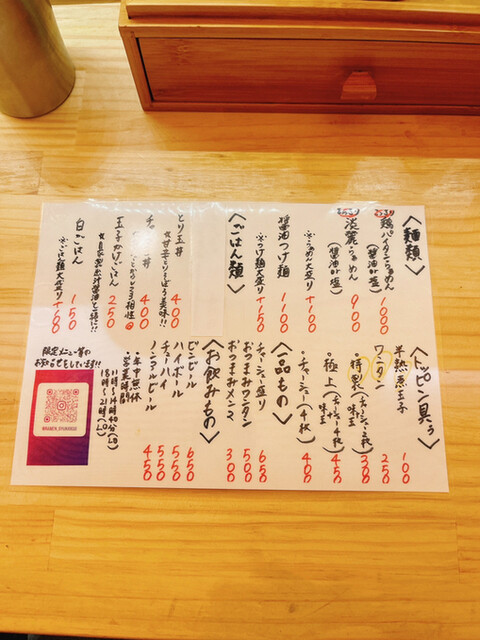 〈麺類〉
鶏パイタンらぁめん
(醤油or塩)
1000
淡麗らぁめん
(醤油or塩)
900
・らぁめん大盛り
+100
醤油つけ麺
1100
・つけ麺大盛り
+150
〈ごはん類〉
とり玉丼
☆甘辛とりそぼろ美味!!
400
400
玉子かけごはん
250
白ごはん
150
※ごはん類大盛り
+100
〈トッピン具ぅ〉
半熟煮玉子
100
ワンタン
250
・特製(チャーシュー2枚、味玉
300
・極上(チャーシュー4枚、味玉
450
・チャーシュー(4枚)
400
〈一品もの〉
チャーシュー盛り
650
おつまみワンタン
500
おつまみメンマ
300
〈お飲みもの〉
ビンビール
650
ハイボール
550
チューハイ
550
ノンアルビール
450
・年中無休
・営業時間
11時〜14時40分(LO)
18時〜21時(LO)
限定メニュー等の
お知らせをしています!!